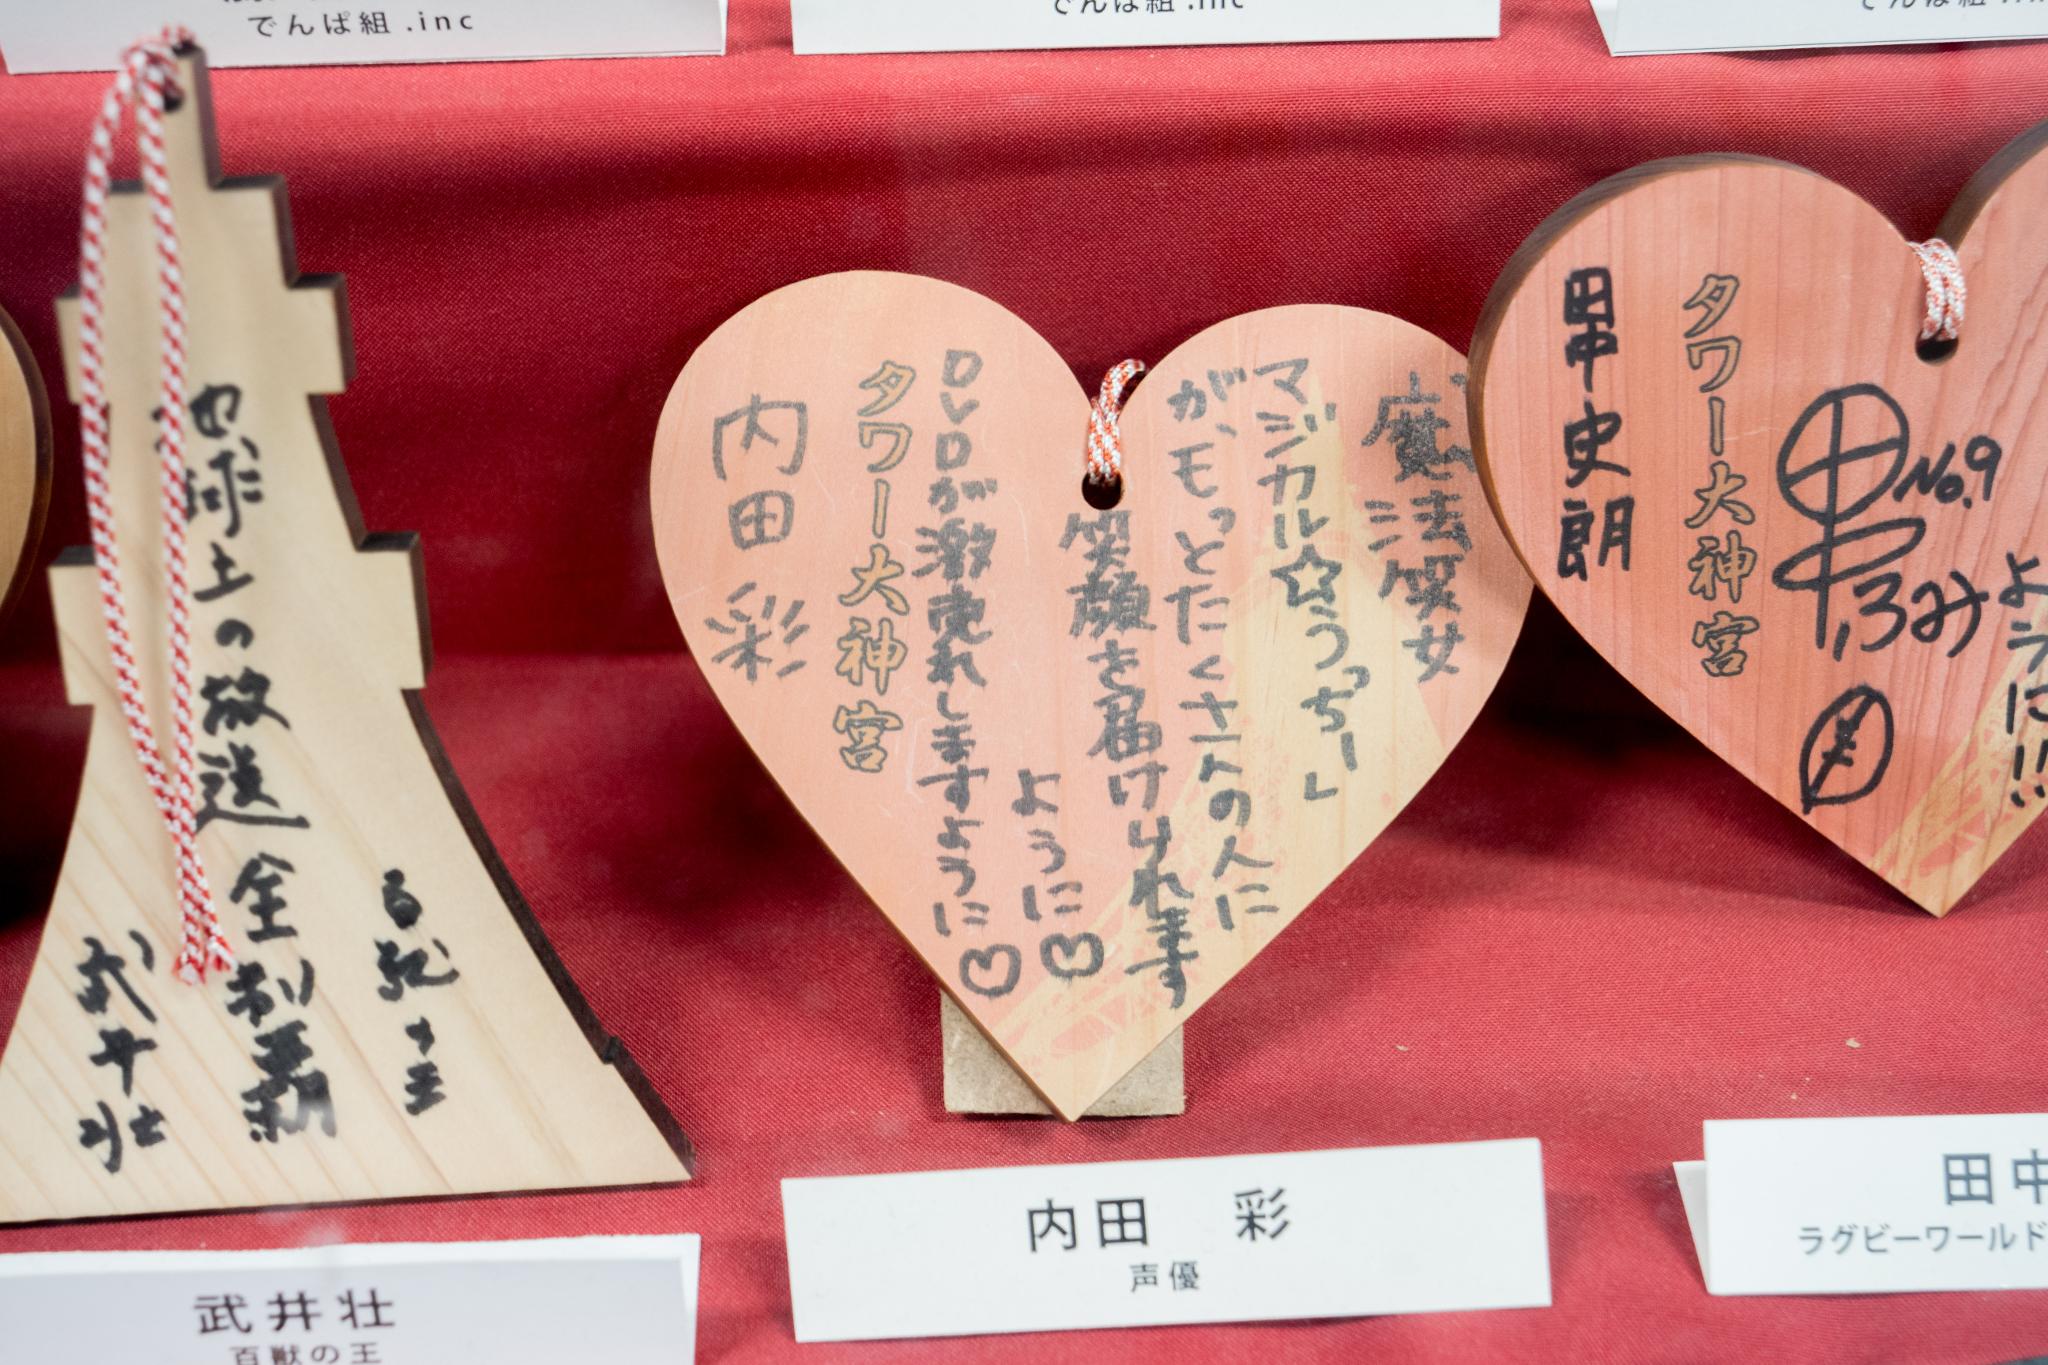 でんぱ組.inc
でんぱ組.inc
地球上の放送
全制覇
百獣の王
武井壮
魔法笑女
マジカル☆うっちー」
が、もっとたくさんの人に
笑顔を届けられます
ように♡
DVDが激売れしますように♡
タワー大神宮
内田彩
ように!!!
No.9
ふみ
タワー大神宮
田中史朗
武井壮
百獣の王
内田 彩
声優
田中
ラグビーワールド